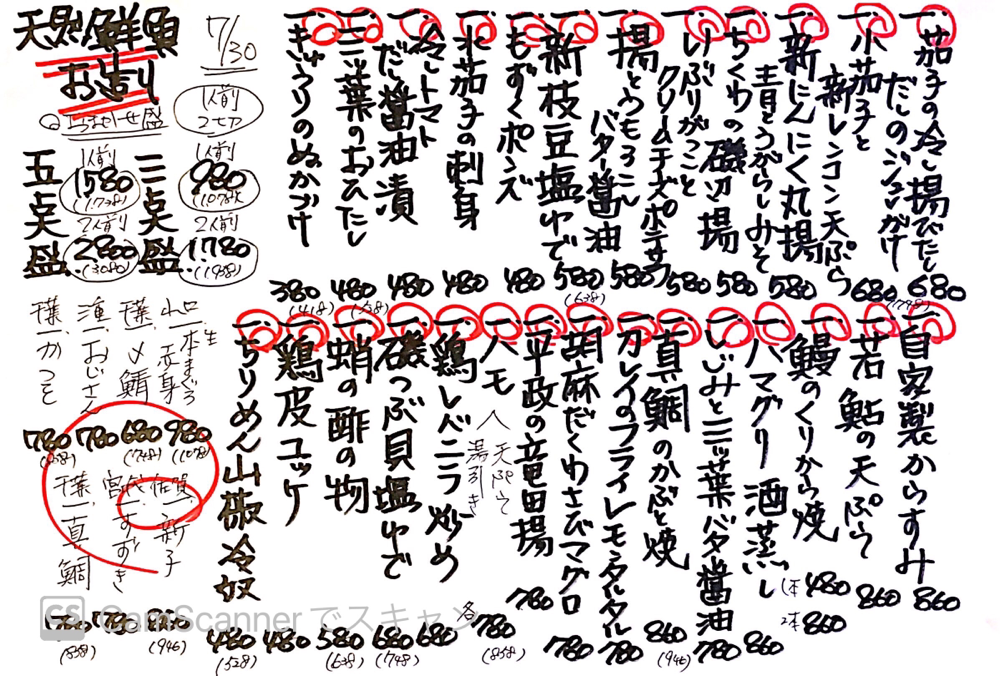 7/30
天然鮮魚
お造り
◎おまかせ盛
1人前
2切
三点盛
1人前
980
(1078)
2人前
1.780
(1958)
五点盛
1人前
1580
(1738)
2人前
2.800
(3080)
生本まぐろ
赤身
980
(1078)
〆鯖
680
(748)
おじさん
780
千葉
かつを
780
(858)
佐賀
新子
860
(946)
宮城
すずき
780
千葉
真鯛
780
(858)
一、茄子の冷し揚びたし
だしのジュレがけ
680
(748)
一、小茄子と
新レンコン天ぷら
680
一、新にんにく丸揚
青とうがらしみそ
580
一、ちくわの磯辺揚
580
一、いぶりがっこと
クリームチーズポテサラ
580
一、揚とうもろこし
バター醤油
580
一、新枝豆塩ゆで
580
(638)
一、もずくポンズ
480
一、水茄子の刺身
480
一、冷しトマト
だし醤油漬
480
一、三ッ葉のおひたし
480
(528)
一、きゅうりのぬかづけ
380
(418)
一、自家製からすみ
860
一、若鮎の天ぷら
860
一、鰻のくりから焼
1本 480
2本 860
一、ハマグリ酒蒸し
860
一、しじみと三ッ葉バター醤油
780
一、真鯛のかぶと焼
860
(946)
一、カレイのフライレモンタルタル
780
一、胡麻だくわさびマグロ
780
一、平政の竜田揚
780
一、ハモ
天ぷら
湯引き
各780
(858)
一、鶏レバニラ炒め
680
一、磯つぶ貝塩ゆで
680
(748)
一、蛸の酢の物
580
(638)
一、鶏皮ユッケ
480
一、ちりめん山椒冷奴
480
(528)
CS CamScanner でスキャン